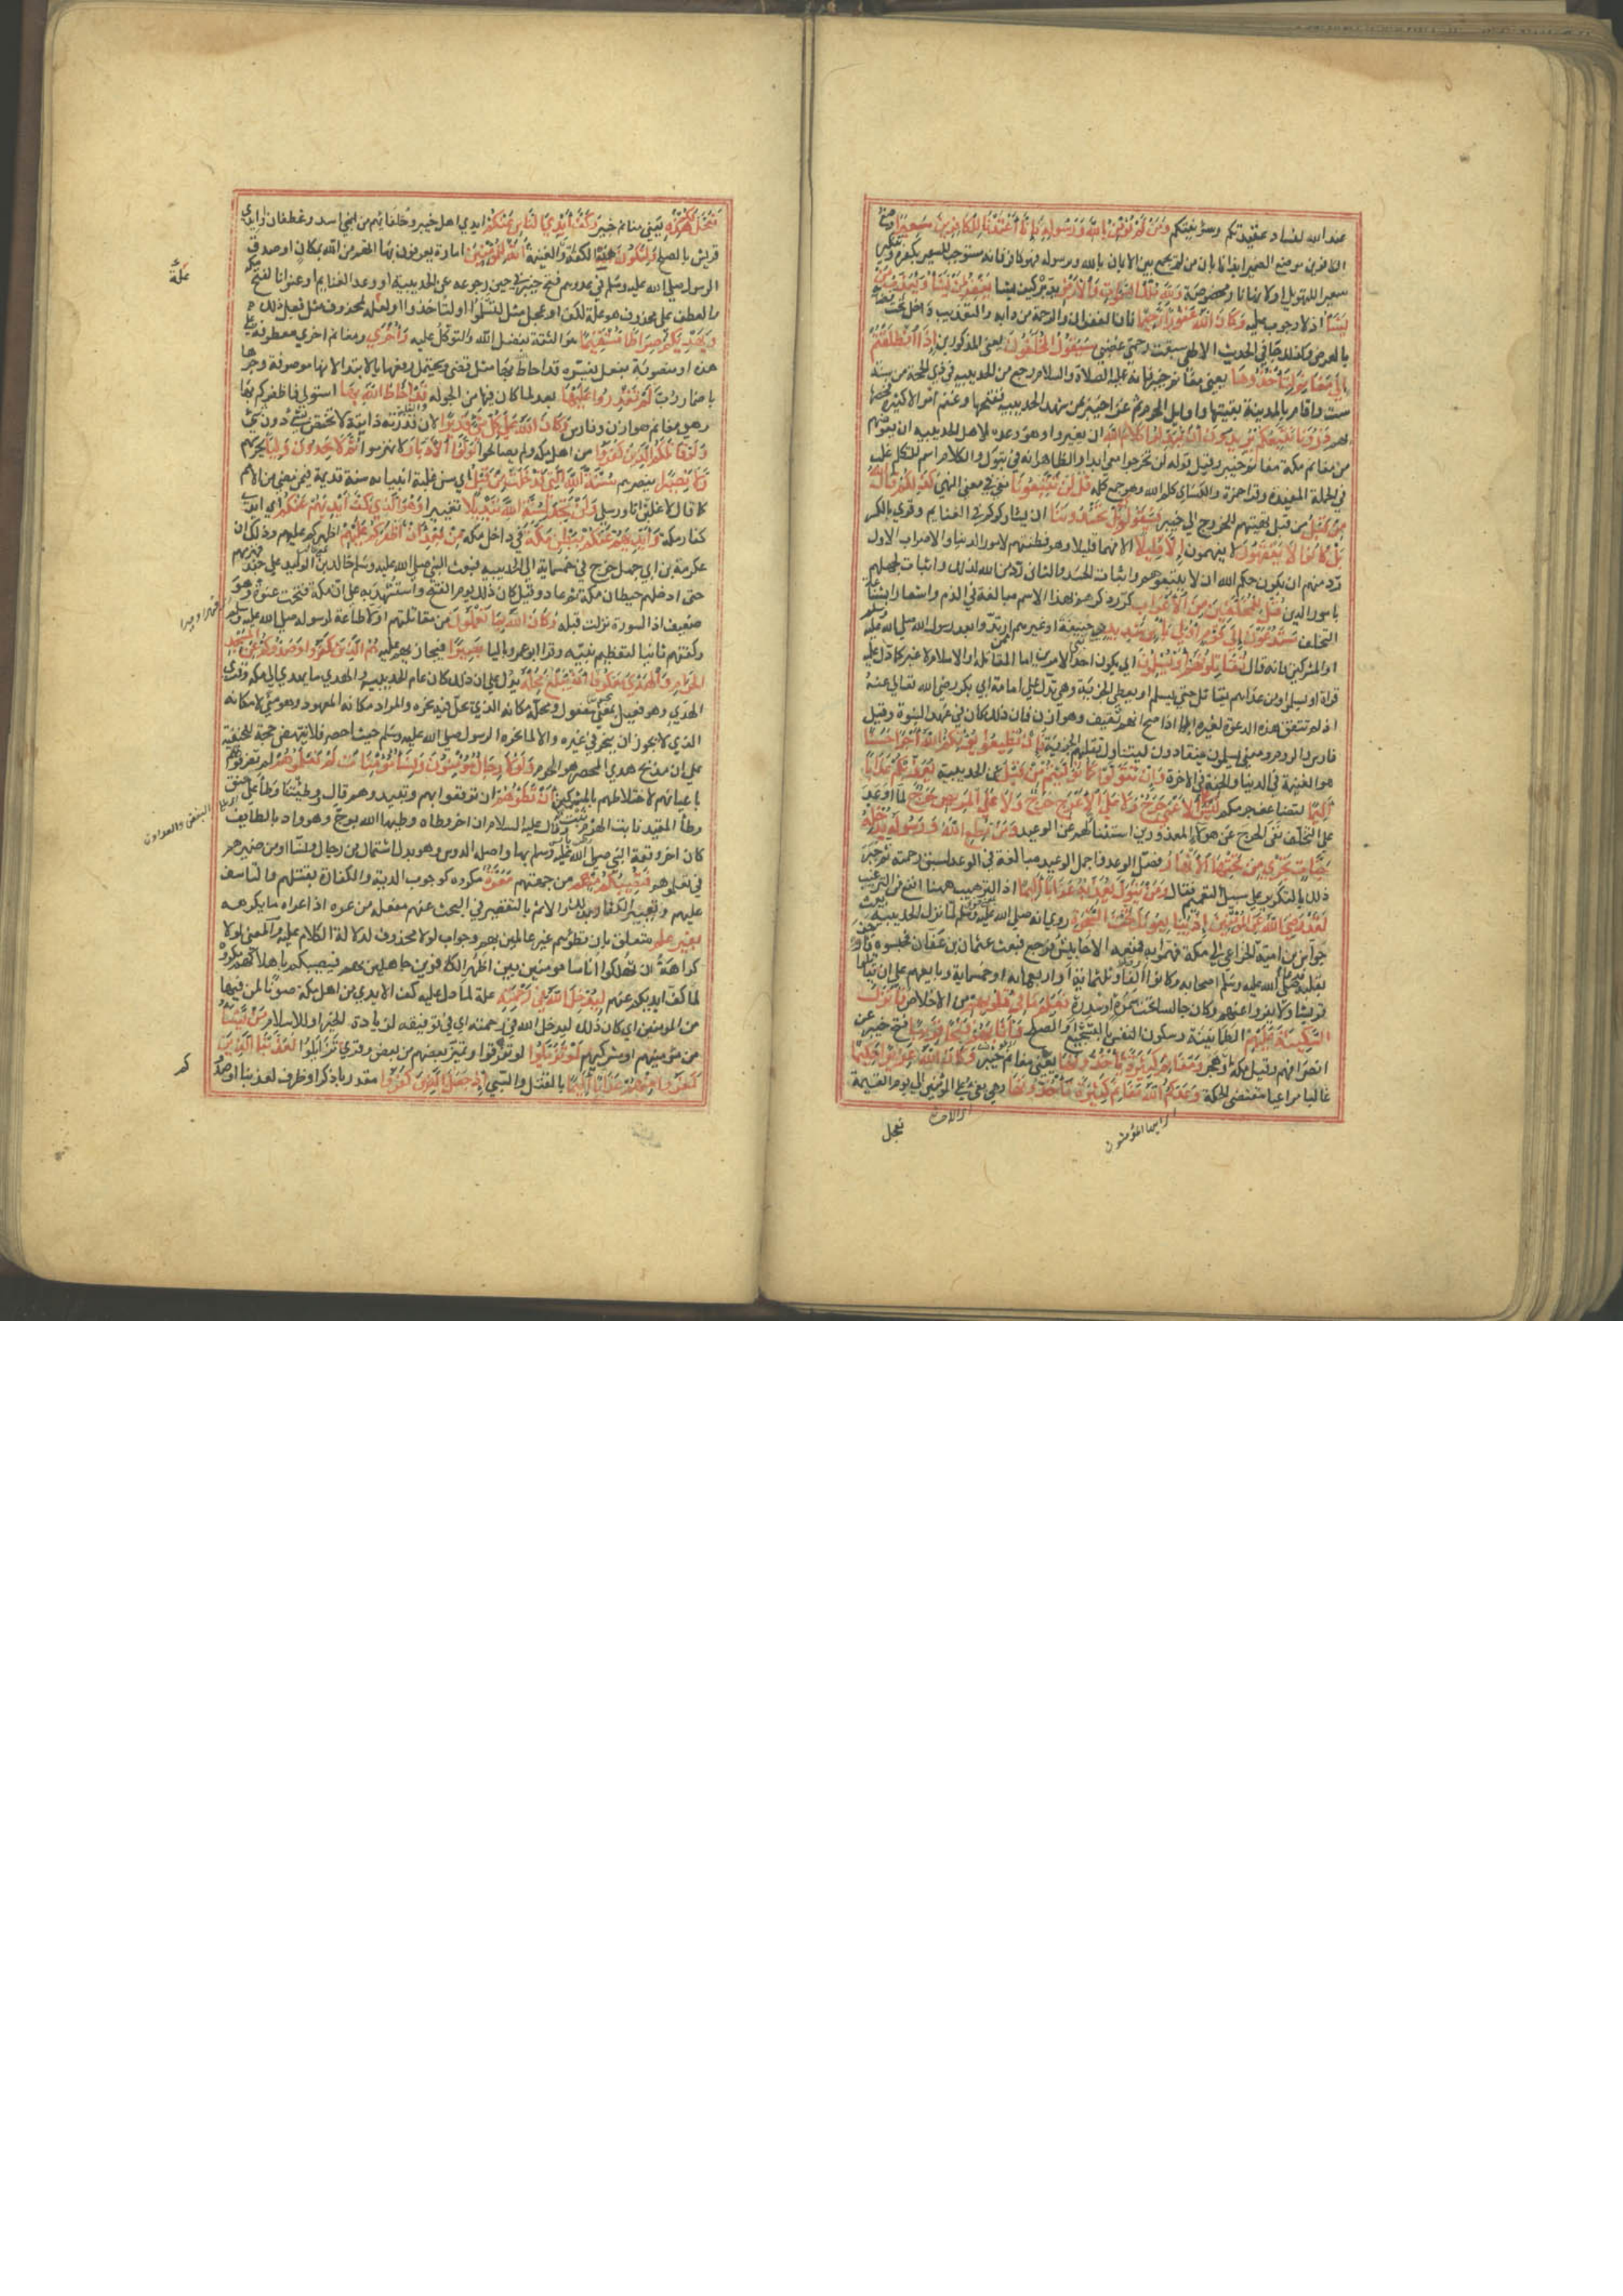 عند الله لفساد عقيدتكم وسوء نيتكم ومن لم يؤمن بالله ورسوله فانا اعتدنا للكافرين سعيرا وضع
الكافرين موضع الضمير ايذانا بان من لم يجمع بين الايمان بالله ورسوله فهو كافر فانه مستوجب للسعير بكفره وتنكير
سعيرا للتهويل او لانها نار مخصوصة ولله ملك السموات والارض يدبره كيف يشا يغفر لمن يشا ويعذب من
يشا اذ لا وجوب عليه وكان الله غفورا رحيما فان الغفران والرحمة من دابه والتعذيب داخل تحت
بالعرض ولذلك جا في الحديث الالهي سبقت رحمتي غضبي سيقول المخلفون يعني المذكورين اذا انطلقتم
الي مغانم لتاخذوها يعني مغانم خيبر فانه عليه الصلاة والسلام رجع من الحديبية في ذي الحجة من سنة
ست واقام بالمدينة بقيتها واوايل المحرم ثم غزا خيبر بمن شهد الحديبية ففتحها وغنم اموالا كثيرة فخصها
بهم ذرونا نتبعكم يريدون ان يبدلوا كلام الله ان يغيروا وهو وعده لاهل الحديبية ان يعوضهم
من مغانم مكة مغانم خيبر وقيل قوله لن تخرجوا معي ابدا والظاهر انه في تبوك والكلام اسم للتكليم غلب
في الجملة المفيدة وقرا حمزة والكساى كلم الله وهو جمع كلمة قل لن تتبعونا نفي في معني النهي كذلكم قال الله
من قبل من قبل تهيئتهم للخروج الي خيبر فسيقولون بل تحسدوننا ان يشارككم في الغنايم وقري بالكسر
بل كانوا لا يفقهون لا يفهمون الا قليلا الا فهما قليلا وهو فطنتهم لامور الدنيا والاضراب الاول
رد منهم ان يكون حكم الله ان لا يتبعوهم واثبات الحسد والثاني رد من الله لذلك واثبات لجهلهم
بامور الدين قل للمخلفين من الاعراب كرر ذكرهم بهذا الاسم مبالغة في الذم واشعارا بشناعة
التخلف ستدعون الي قوم اولي باس شديد بني حنيفة او غيرهم ممن ارتدوا بعد رسول الله صلي الله عليه وسلم
او المشركين فانه قال تقاتلونهم او يسلمون اي يكون احد الامرين اما المقاتلة او الاسلام لا غير كما دل عليه
قراة او يسلموا ومن عداهم يقاتل حتي يسلم او يعطي الجزية وهي تدل علي امامة ابي بكر رضي الله تعالي عنه
اذ لم تتفق هذه الدعوة لغيره الا اذا صح انهم ثقيف وهوازن فان ذلك كان في عهد النبوة وقيل
فارس والروم ومعني يسلمون ينقادون ليتناول تقبلهم الجزية فان تطيعوا يؤتكم الله اجرا حسنا
هو الغنيمة في الدنيا والجنة في الاخرة وان تتولوا كما توليتم من قبل عن الحديبية يعذبكم عذابا
اليما لتضاعف جرمكم ليس علي الاعمي حرج ولا علي الاعرج حرج ولا علي المريض حرج لما اوعد
علي التخلف نفي الحرج عن هؤلا المعذورين استثنا لهم عن الوعيد ومن يطع الله ورسوله يدخله
جنات تجري من تحتها الانهار فصل الوعد واجمل الوعيد مبالغة في الوعد لسبق رحمته ثم جبر
ذلك بالتكرير علي سبيل التعميم فقال ومن يتول يعذبه عذابا اليما اذ الترهيب ههنا انفع من الترغيب
لقد رضي الله عن المؤمنين اذ يبايعونك تحت الشجرة روي انه صلي الله عليه وسلم لما نزل الحديبية بعث
جواس بن امية الخزاعي الي مكة فهموا به فمنعه الاحابيش فرجع فبعث عثمان بن عفان فحبسوه فارجف
بقتله فدعا رسول الله عليه وسلم اصحابه وكانوا الفا وثلثماية او اربعماية او خمسماية وبايعهم علي ان يقاتلوا
قريشا ولا يفروا عنهم وكان جالسا تحت سمرة او سدرة فعلم ما في قلوبهم من الاخلاص فانزل
السكينة عليهم الطمانينة وسكون النفس بالتشجيع او الصلح واثابهم فتحا قريبا فتح خيبر عن
انصرافهم وقيل مكة او هجر ومغانم كثيرة ياخذونها يعني مغانم خيبر وكان الله عزيزا حكيما
غالبا مراعيا مقتضي الحكمة وعدكم الله مغانم كثيرة تاخذونها وهي ما يفي علي المؤمنين الي يوم القيمة
ايها المؤمنون
فعجل
فعجل لكم هذه يعني مغانم خيبر وكف ايدي الناس عنكم ايدي اهل خيبر وحلفائهم من بني اسد وغطفان او ايدي
قريش بالصلح ولتكون هذه الكفة او الغنيمة اية للمؤمنين امارة يعرفون بها انهم من الله بمكان او صدق
الرسول صلي الله عليه وسلم في وعدهم فتح خيبر في حين رجوعه عن الحديبية او وعد الغنايم او عنوانا لفتح مكة
والعطف علي محذوف هو علة لكف او عجل مثل لتسلموا او لتاخذوا او العلة لمحذوف مثل فعل ذلك
ويهديكم صراطا مستقيما هو الثقة بفضل الله والتوكل عليه واخري ومغانم اخري معطوفة علي
هذه او منصوبة بفعل يفسره قد احاط بها مثل قضي ويحتمل رفعها بالابتدا لانها موصوفة وجرها
باضمار رب لم تقدروا عليها بعد لما كان فيها من الجولة قد احاط الله بها استولي فاظفركم بها
وهي مغانم هوازن وفارس وكان الله علي كل شي قديرا لان قدرته ذاتية لا تختص بشي دون شي
ولو قاتلكم الذين كفروا من اهل مكة ولم يصالحوا لولوا الادبار لانهزموا ثم لا يجدون وليا يحرسهم
ولا نصيرا ينصرهم سنة الله التي قد خلت من قبل اي سن غلبة انبيائه سنة قديمة فيمن مضي من الامم
كما قال لاغلبن انا ورسلي ولن تجد لسنة الله تبديلا تغييرا وهو الذي كف ايديهم عنكم اي ايدي
كفار مكة وايديكم عنهم ببطن مكة في داخل مكة من بعد ان اظفركم عليهم اظهركم عليهم وذلك ان
عكرمة بن ابي جهل خرج في خمسماية الي الحديبية فبعث النبي صلي الله عليه وسلم خالد بن الوليد علي جند فهزمهم
حتي ادخلهم حيطان مكة ثم عاد وقيل كان ذلك يوم الفتح واستشهد به علي ان مكة فتحت عنوة وهو
ضعيف اذ السورة نزلت قبله وكان الله بما تعملون من مقاتلتهم اولا طاعة لرسوله صلي الله عليه وسلم
وكفهم ثانيا لتعظيم بيته وقرا ابو عمرو باليا بصيرا فيجازيهم عليه هم الذين كفروا وصدوكم عن المسجد
الحرام والهدي معكوفا ان يبلغ محله يدل علي ان ذلك كان عام الحديبية والهدي ما يهدي الي مكة وقري
الهدي وهو فعيل بمعني مفعول ومحله مكانه الذي يحل فيه نحره والمراد مكانه المعهود وهو مني لا مكانه
الذي لا يجوز ان ينحر في غيره والا لما نحره الرسول صلي الله عليه وسلم حيث احصر فلا ينتهض حجة للحنفية
علي ان مذبح هدي المحصر هو الحرم ولولا رجال مؤمنون ونسا مؤمنات لم تعلموهم لم تعرفوهم
باعيانهم لاختلاطهم بالمشركين ان تطؤهم ان توقعوا بهم وتبيدوهم قال ووطئتنا وطأ علي حنق
وطأ المقيد نابت الهرم وقال عليه السلام ان اخر وطاة وطيها الله بوج وهو واد بالطايف
كان اخر وقعة النبي صلي الله عليه وسلم بها واصله الدوس وهو بدل اشتمال من رجال ونسا او من ضميرهم
في تعلموهم فتصيبكم منهم من جهتهم معرة مكروه كوجوب الدية والكفارة بقتلهم والتاسف
عليهم وتعيير الكفار بذلك والاثم بالتقصير في البحث عنهم مفعلة من عره اذا عراه ما يكرهه
بغير علم متعلق بان تطؤهم غير عالمين بهم وجواب لولا محذوف لدلالة الكلام عليه والمعني لولا
كراهة ان تهلكوا اناسا مومنين بين اظهر الكافرين جاهلين بهم فيصيبكم باهلاكهم مكروه
لما كف ايديكم عنهم ليدخل الله في رحمته علة لما دل عليه كف الايدي من اهل مكة صونا لمن فيها
من المومنين اي كان ذلك ليدخل الله في رحمته اي في توفيقه لزيادة الخير او للاسلام من يشا
من مؤمنيهم او مشركيهم لو تزيلوا لو تفرقوا وتميز بعضهم من بعض وقري تزايلوا لعذبنا الذين
كفروا منهم عذابا اليما بالقتل والسبي اذ جعل الذين كفروا مقدر باذكر او ظرف لعذبنا او صدوكم
علة
قهرا وجبرا
البغض والعداوة